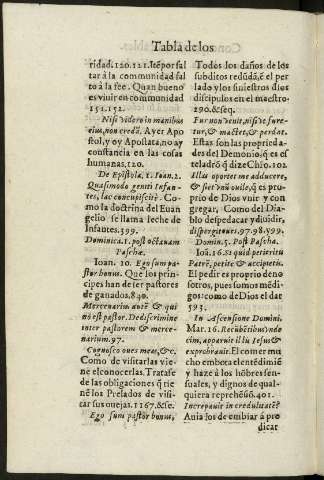 Tabla de los
ridad.120.121. Itē por fal
tar à la communidad fal
to à la fee. Quan bueno
es viuir en communidad
151.152.
Nisi videro in manibus
eius, non credā. Ayer Apos
tol, y oy Apostata, no ay
constancia en las cosas
humanas, 120.
De Epistola. 1. Ioan. 2.
Quasimodo geniti Infan-
tes, lac concupiscite. Co-
mo la doctrina del Euan
gelio se llama leche de
Infantes. 399.
Dominica.1. post octauam
Paschæ.
Ioan. 10. Ego sum pa-
stor bonus. Que los prin-
cipes han de ser pastores
de ganados, 840.
Mercenarius autē & qui
nō est pastor. De discrimine
inter pastorem & merce-
narium. 97.
Cognosco oues meas, &c.
Como de visitarlas vie-
ne el conocerlas. Tratase
de las obligaciones q̄ tie
nē los Prelados de visi-
tar sus ouejas. 1167. &se.
Ego sum pastor bonus,
Todos los daños de los
subditos redūdā, ē el per
lado y los siniestros dios
discipulos en el maestro.
190. &seq.
Fur non venit, nisi vt fure-
tur, & mactet, & perdat.
Estas son las proprieda-
des del Demonio, q̄ es el
ladrō q̄ dize Chrō. 102
Illas oportet me adducere,
& fiet vnū ouile, q̄ es pro-
prio de Dios vnir y con
gregar, Como del Dia-
blo despedaçar y diuidir,
dispergit oues. 97. 98. 799.
Domin. 5. Post Pascha.
Ioā. 16. Si quid petieritis
Patrē, petite & accipietis.
El pedir es proprio de no
sotros, pues somos mēdi-
gos: como de Dios el dar
593.
In Ascensione Domini.
Mar. 16. Recūbētibus vnde
cim, apparuit illis Iesus &
exprobrauit. El comer mu
cho embota el entēdimiē
y haze à los hōbres sen-
suales, y dignos de qual-
quiera reprehēsió. 401.
Increpauit in credulitatē?
Auia los de embiar à pre
dicar